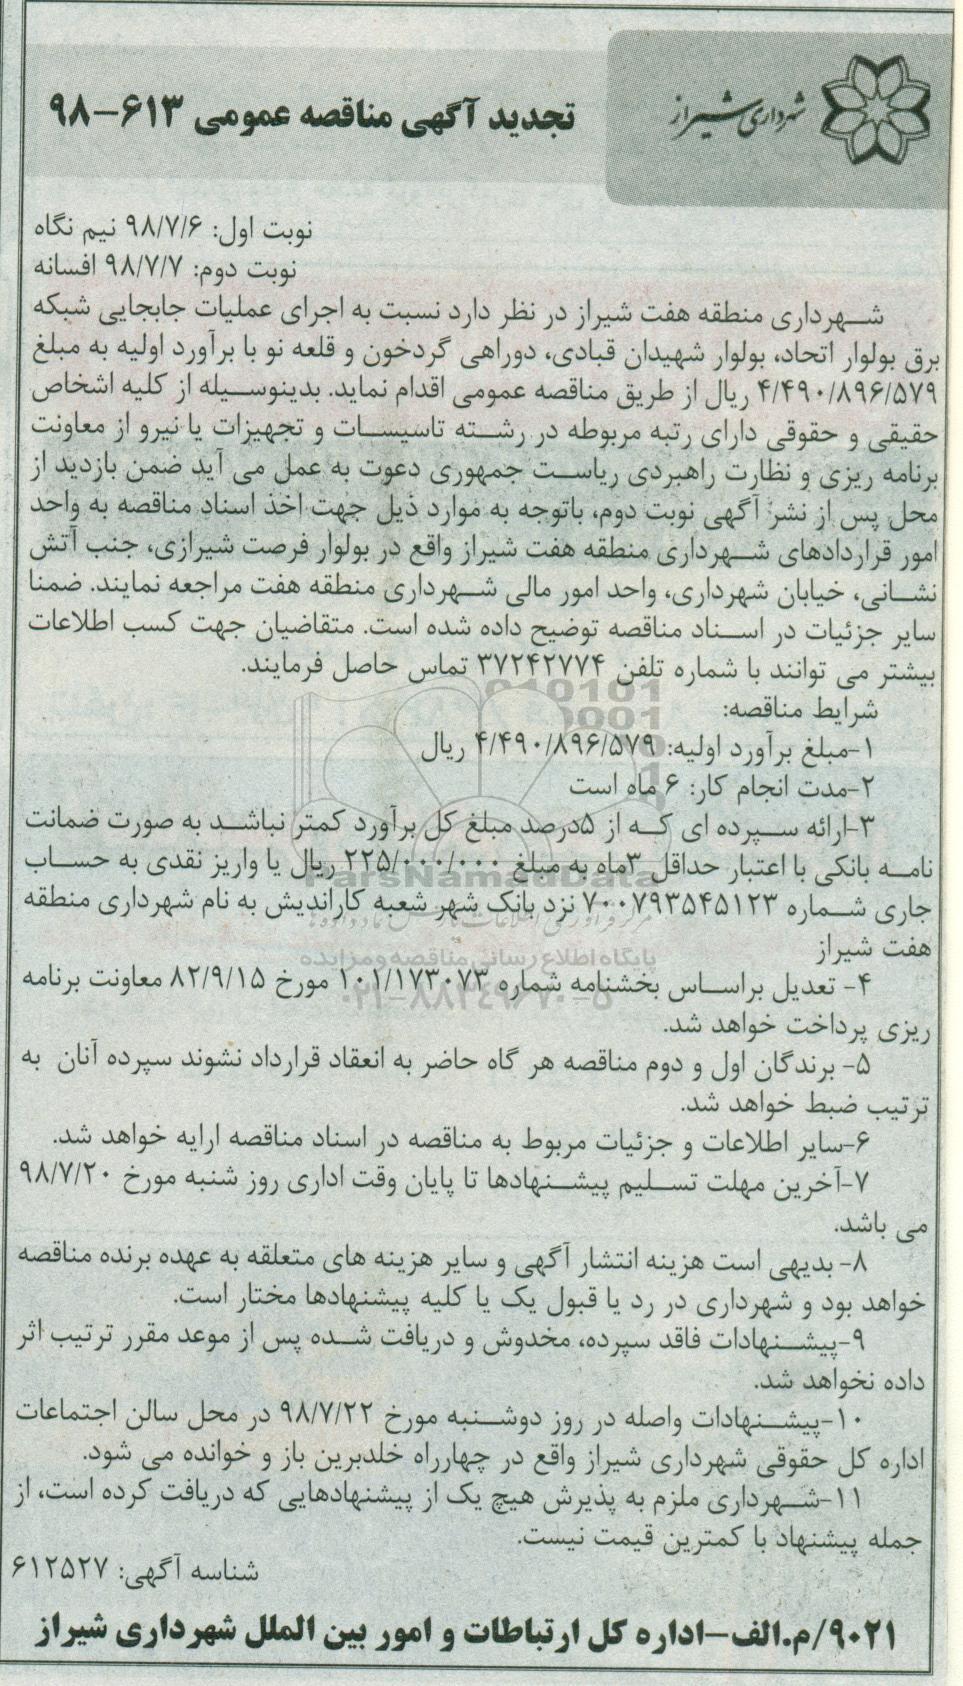 شهرداری شیراز
تجدید آگهی مناقصه عمومی ۶۱۳-۹۸
نوبت اول: ۹۸/۷/۶ نیم نگاه
نوبت دوم: ۹۸/۷/۷ افسانه
شهرداری منطقه هفت شیراز در نظر دارد نسبت به اجرای عملیات جابجایی شبکه
برق بولوار اتحاد، بولوار شهیدان قبادی، دوراهی گردخون و قلعه نو با برآورد اولیه به مبلغ
۴/۴۹۰/۸۹۶/۵۷۹ ریال از طریق مناقصه عمومی اقدام نماید. بدینوسیله از کلیه اشخاص
حقیقی و حقوقی دارای رتبه مربوطه در رشته تاسیسات و تجهیزات یا نیرو از معاونت
برنامه ریزی و نظارت راهبردی ریاست جمهوری دعوت به عمل می آید ضمن بازدید از
محل پس از نشر آگهی نوبت دوم، باتوجه به موارد ذیل جهت اخذ اسناد مناقصه به واحد
امور قراردادهای شهرداری منطقه هفت شیراز واقع در بولوار فرصت شیرازی، جنب آتش
نشانی، خیابان شهرداری، واحد امور مالی شهرداری منطقه هفت مراجعه نمایند. ضمنا
سایر جزئیات در اسناد مناقصه توضیح داده شده است. متقاضیان جهت کسب اطلاعات
بیشتر می توانند با شماره تلفن ۳۷۲۴۲۷۷۴ تماس حاصل فرمایند.
شرایط مناقصه:
۱-مبلغ برآورد اولیه: ۴/۴۹۰/۸۹۶/۵۷۹ ریال
۲-مدت انجام کار: ۶ ماه است
۳-ارائه سپرده ای که از ۵درصد مبلغ کل برآورد کمتر نباشد به صورت ضمانت
نامه بانکی با اعتبار حداقل ۳ماه به مبلغ ۲۲۵/۰۰۰/۰۰۰ ریال یا واریز نقدی به حساب
جاری شماره ۷۰۰۷۹۳۵۴۵۱۲۳ نزد بانک شهر شعبه کاراندیش به نام شهرداری منطقه
هفت شیراز
۴- تعدیل براساس بخشنامه شماره ۱۰۱/۱۷۳۰۷۳ مورخ ۸۲/۹/۱۵ معاونت برنامه
ریزی پرداخت خواهد شد.
۵- برندگان اول و دوم مناقصه هر گاه حاضر به انعقاد قرارداد نشوند سپرده آنان به
ترتیب ضبط خواهد شد.
۶-سایر اطلاعات و جزئیات مربوط به مناقصه در اسناد مناقصه ارایه خواهد شد.
۷-آخرین مهلت تسلیم پیشنهادها تا پایان وقت اداری روز شنبه مورخ ۹۸/۷/۲۰
می باشد.
۸- بدیهی است هزینه انتشار آگهی و سایر هزینه های متعلقه به عهده برنده مناقصه
خواهد بود و شهرداری در رد یا قبول یک یا کلیه پیشنهادها مختار است.
۹-پیشنهادات فاقد سپرده، مخدوش و دریافت شده پس از موعد مقرر ترتیب اثر
داده نخواهد شد.
۱۰-پیشنهادات واصله در روز دوشنبه مورخ ۹۸/۷/۲۲ در محل سالن اجتماعات
اداره کل حقوقی شهرداری شیراز واقع در چهارراه خلدبرین باز و خوانده می شود.
۱۱-شهرداری ملزم به پذیرش هیچ یک از پیشنهادهایی که دریافت کرده است، از
جمله پیشنهاد با کمترین قیمت نیست.
شناسه آگهی: ۶۱۲۵۲۷
۹۰۲۱/م.الف-اداره کل ارتباطات و امور بین الملل شهرداری شیراز
ParsNamadData
پایگاه اطلاع رسانی مناقصه و مزایده
۰۲۱-۸۸۳۴۹۶۷۰-۵